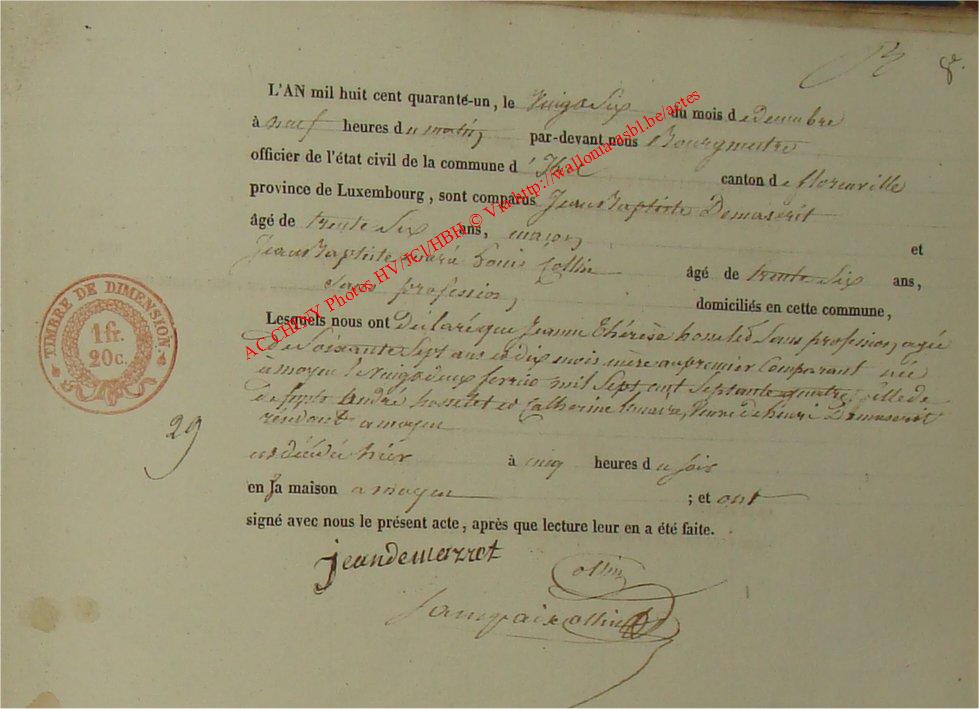 L'AN mil huit cent quarante-un, le vingt Six du mois de decembre
à neuf heures du matin, par-devant nous Bourgmestre
officier de l'état civil de la commune d'Izel canton de florenville
province de Luxembourg, sont comparus Jean Baptiste Demaseret
âgé de trente Six ans, maçon, et
Jean Baptiste Louis Collin âgé de trente Six ans,
Sans profession, domiciliés en cette commune,
Lesquels nous ont déclaré que Jeanne Thérèse Sans profession, agée
de Soixante Sept ans et dix mois mère au premier Comparant née
a moyen le vingt deux mil Sept cent Septante quatre, fille de
defunts andré et Catherine veuve de henri Demaseret
a moyen
est décédée hier à cinq heures du soir
en Ja maison a moyen ; et ont
signé avec nous le présent acte, après que lecture leur en a été faite.
jean demazret
Collin
Collin
29
TIMBRE DE DIMENSION
1 fr.
20 c.
AC CHINY Photos HV/JCl/HBH © Via http://wallonia-asbl.be/actes